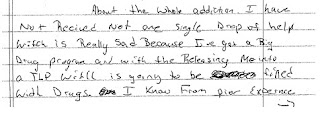 About the whole addiction I have
Not Recived Not one single Drop of help
witch is Really Sad Because I've got a Big
Drug program and with the Releasing Me into
a TLP witch is going to be filled
with Drugs. I Know From prior Experence